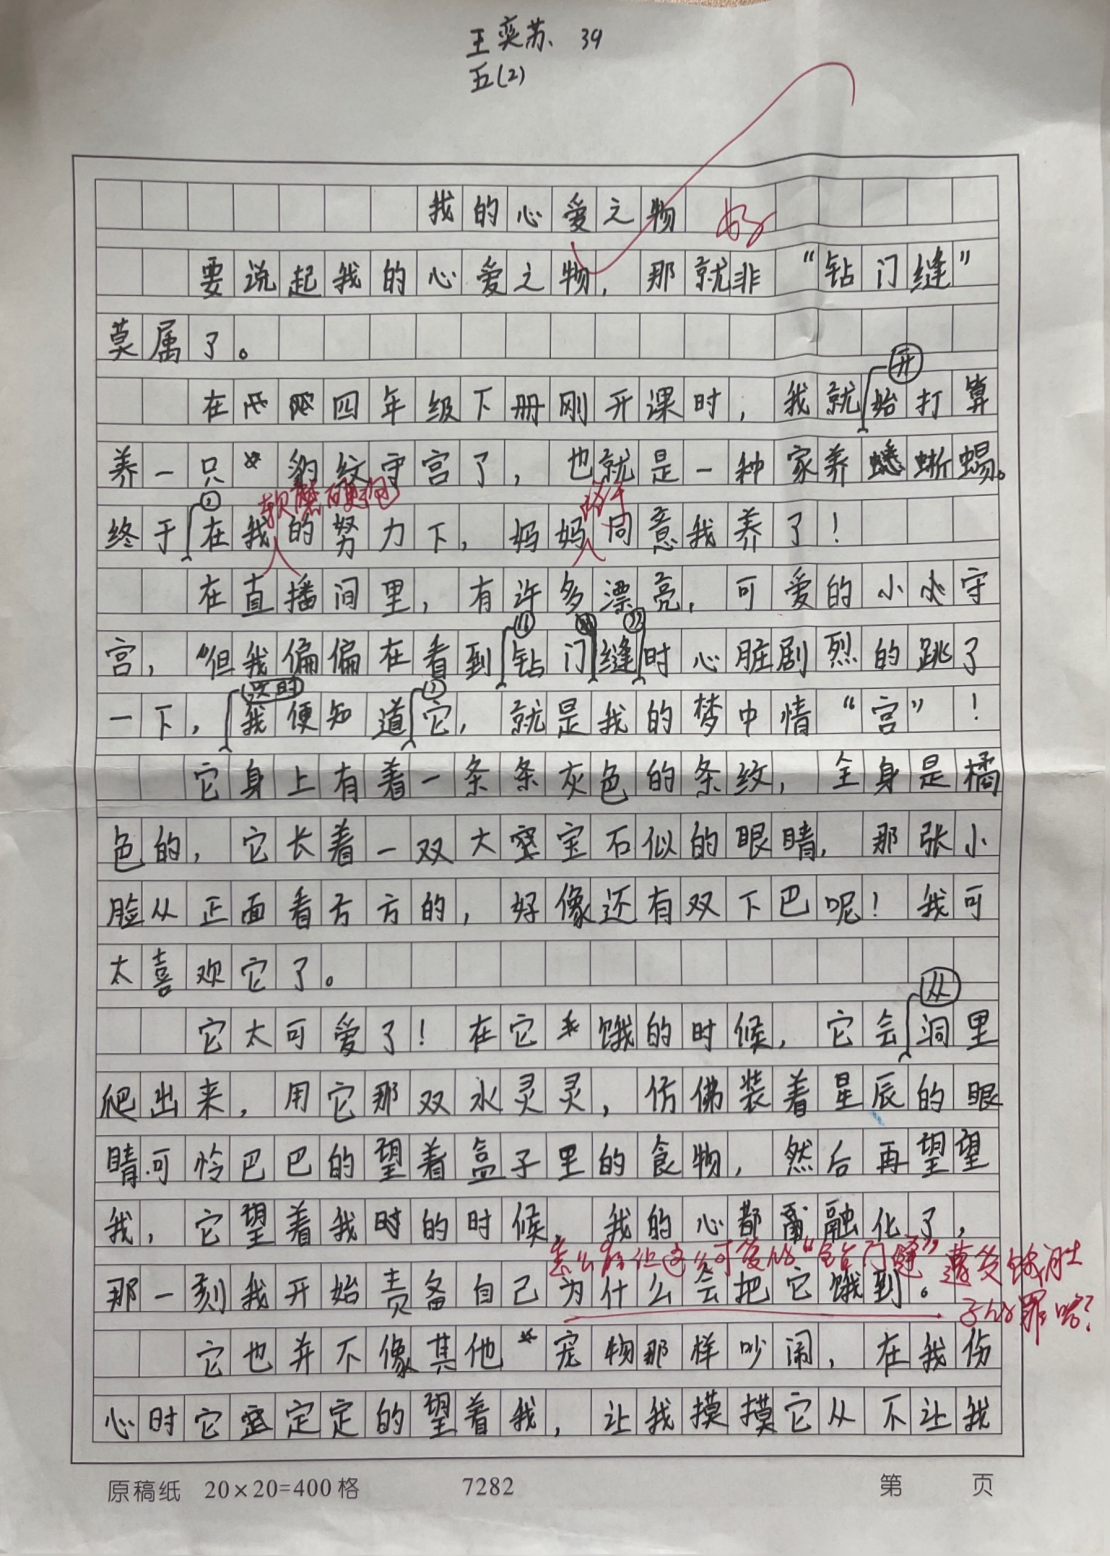 王奕苏 39
五(2)
我的心爱之物 好
要说起我的心爱之物，那就非“钻门缝”
莫属了。
开
在四年级下册刚开课时，我就始打算
养一只豹纹守宫了，也就是一种家养蟋蜥蜴。
， 软磨硬泡 终于
终于在我的努力下，妈妈同意我养了！
在直播间里，有许多漂亮，可爱的小小守
宫，但我偏偏在看到钻门缝时心脏剧烈的跳了
这时 ，
一下，我便知道它，就是我的梦中情“宫”！
它身上有着一条条灰色的条纹，全身是橘
色的，它长着一双大宝石似的眼睛，那张小
脸从正面看方方的，好像还有双下巴呢！我可
太喜欢它了。
从
它太可爱了！在它饿的时候，它会洞里
爬出来，用它那双水灵灵，仿佛装着星辰的眼
睛可怜巴巴的望着盒子里的食物，然后再望望
我，它望着我时的时候，我的心都融化了，
怎么能让这么可爱的“钻门缝”遭受饿肚
子的罪呢？
那一刻我开始责备自己为什么会把它饿到。
它也并不像其他宠物那样吵闹，在我伤
心时它定定的望着我，让我摸摸它从不让我
原稿纸 20×20=400格 7282 第 页